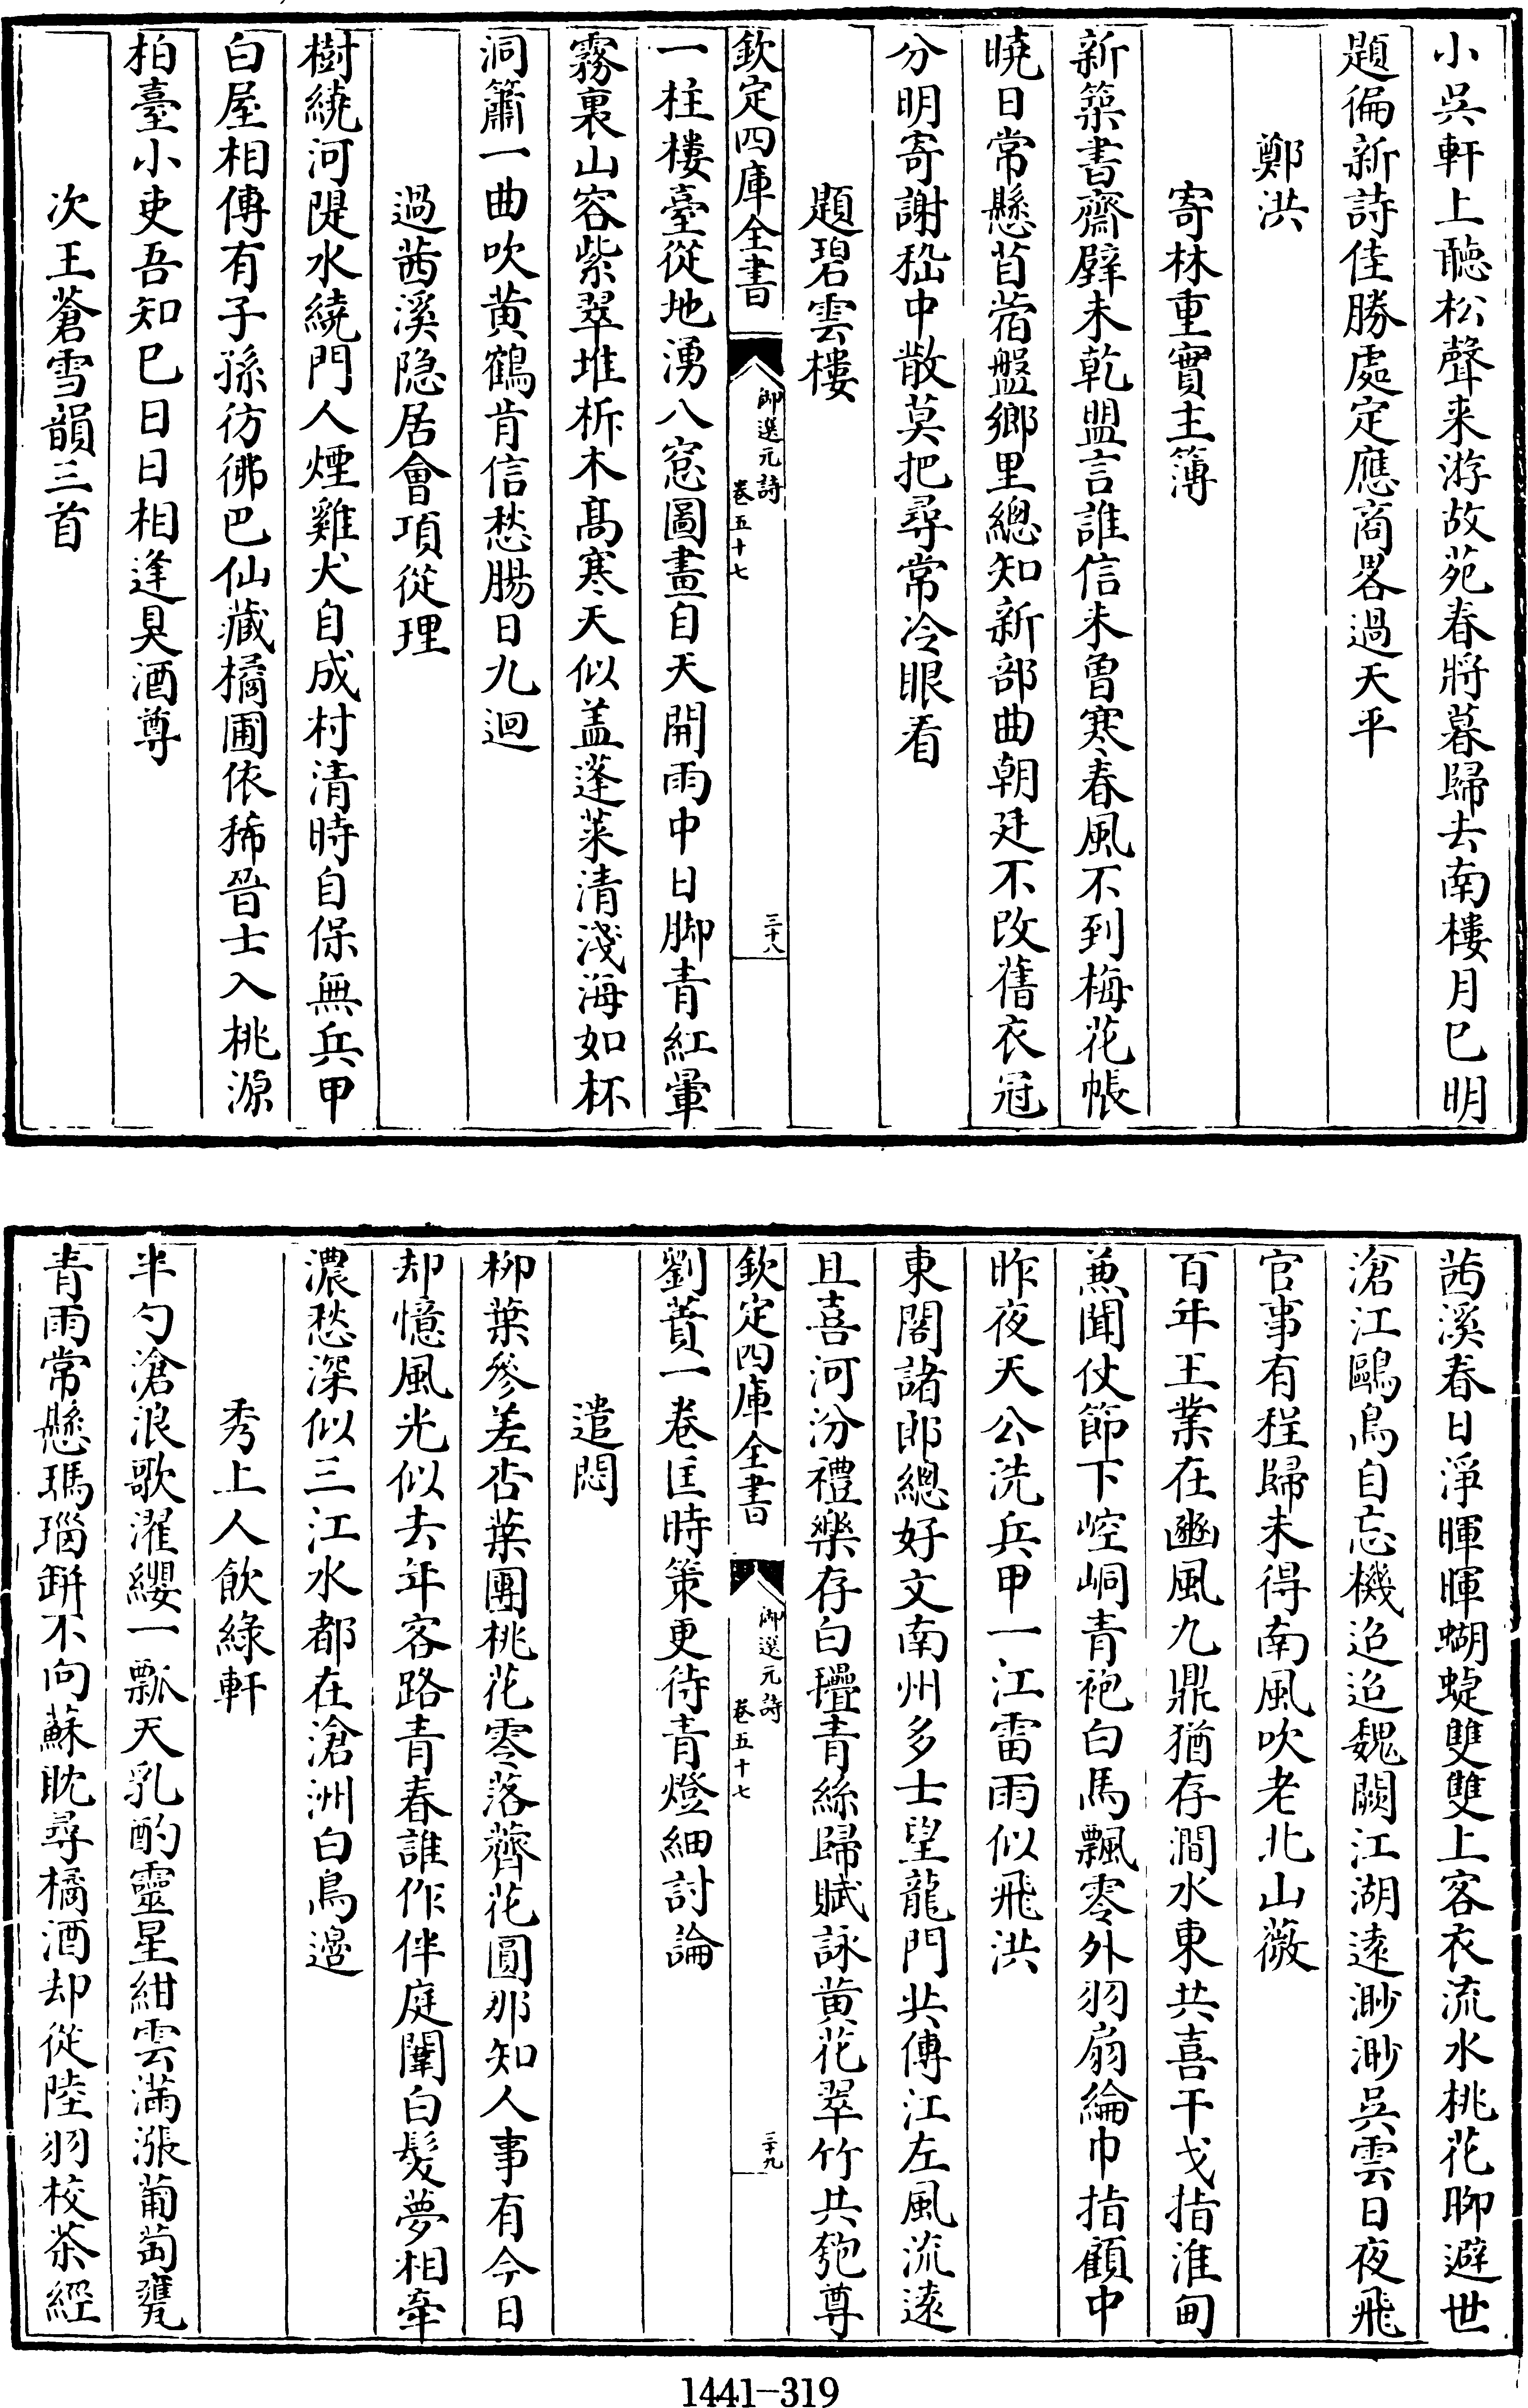 小吳軒上聽松聲来游故苑春將暮歸去南樓月已明
題徧新詩佳勝處定應商畧過天平
鄭洪
寄林重實主簿
新築書齋壁未乾盟言誰信未曾寒春風不到梅花帳
曉日常懸苜蓿盤鄉里總知新部曲朝廷不改舊衣冠
分明寄謝嵇中散莫把尋常冷眼看
題碧雲樓
欽定四庫全書
御選元詩
卷五十七
三十八
一柱樓臺從地湧八窓圖畫自天開雨中日脚青紅暈
霧裏山容紫翠堆析木髙寒天似盖蓬萊清淺海如杯
洞簫一曲吹黄鶴肯信愁腸日九迴
過茜溪隐居會項從理
樹繞河隄水繞門人煙雞犬自成村清時自保無兵甲
白屋相傳有子孫彷彿巴仙藏橘圃依稀晉士入桃源
柏臺小吏吾知已日日相逢具酒尊
次王蒼雪韻三首
茜溪春日淨暉暉蝴蝶雙雙上客衣流水桃花聊避世
滄江鷗鳥自忘機迢迢魏闕江湖遠渺渺吳雲日夜飛
官事有程歸未得南風吹老北山薇
百年王業在豳風九鼎猶存澗水東共喜干戈指淮甸
兼聞仗節下崆峒青袍白馬飄零外羽扇綸巾指顧中
昨夜天公洗兵甲一江雷雨似飛洪
東閣諸郎總好文南州多士望龍門共傳江左風流遠
且喜河汾禮樂存白㼆青絲歸賦詠黄花翠竹共匏尊
欽定四庫全書
御選元詩
卷五十七
三十九
劉蕡一卷匡時策更待青燈細討論
遣悶
柳葉參差杏葉團桃花零落薺花圓那知人事有今日
却憶風光似去年客路青春誰作伴庭闈白髮夢相牽
濃愁深似三江水都在滄洲白鳥邉
秀上人飲綠軒
半勺滄浪歌濯纓一瓢天乳酌靈星紺雲滿漲葡萄甕
青雨常懸瑪瑙缾不向蘇耽尋橘酒却從陸羽校茶經
1441-319